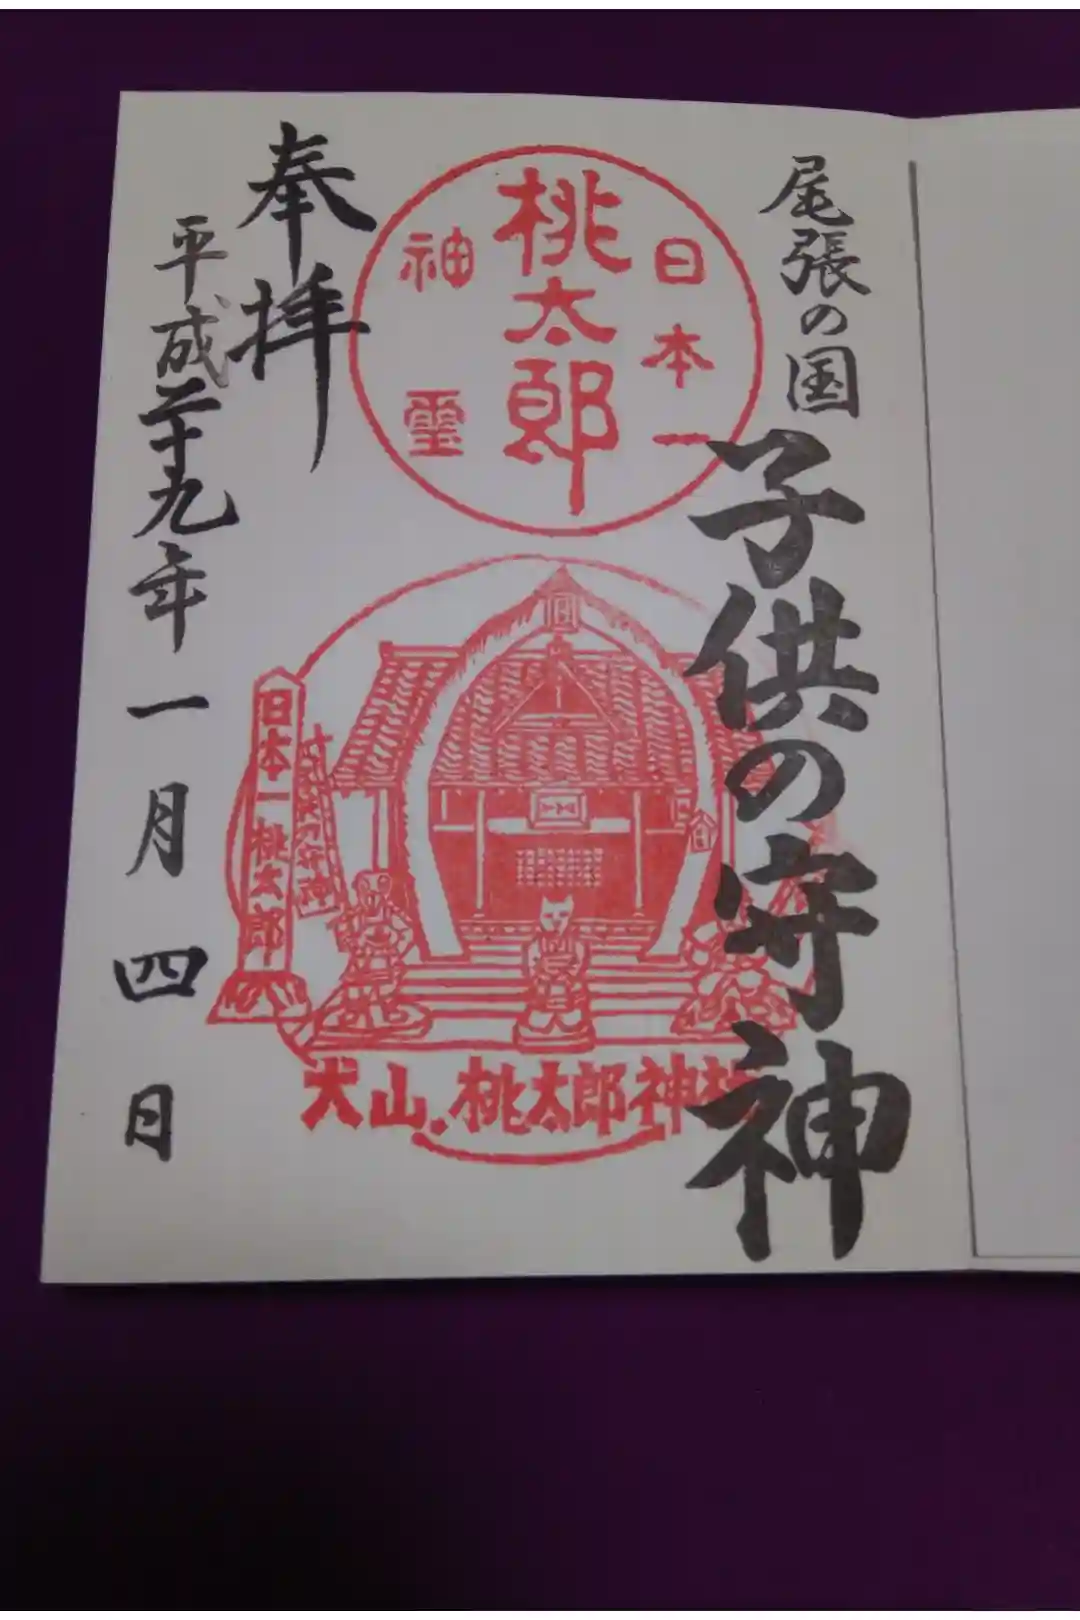 尾張の国
子供の守神
日本一
桃太郎
神霊
奉拝
平成二十九年一月四日
日本一桃太郎
犬山・桃太郎神社